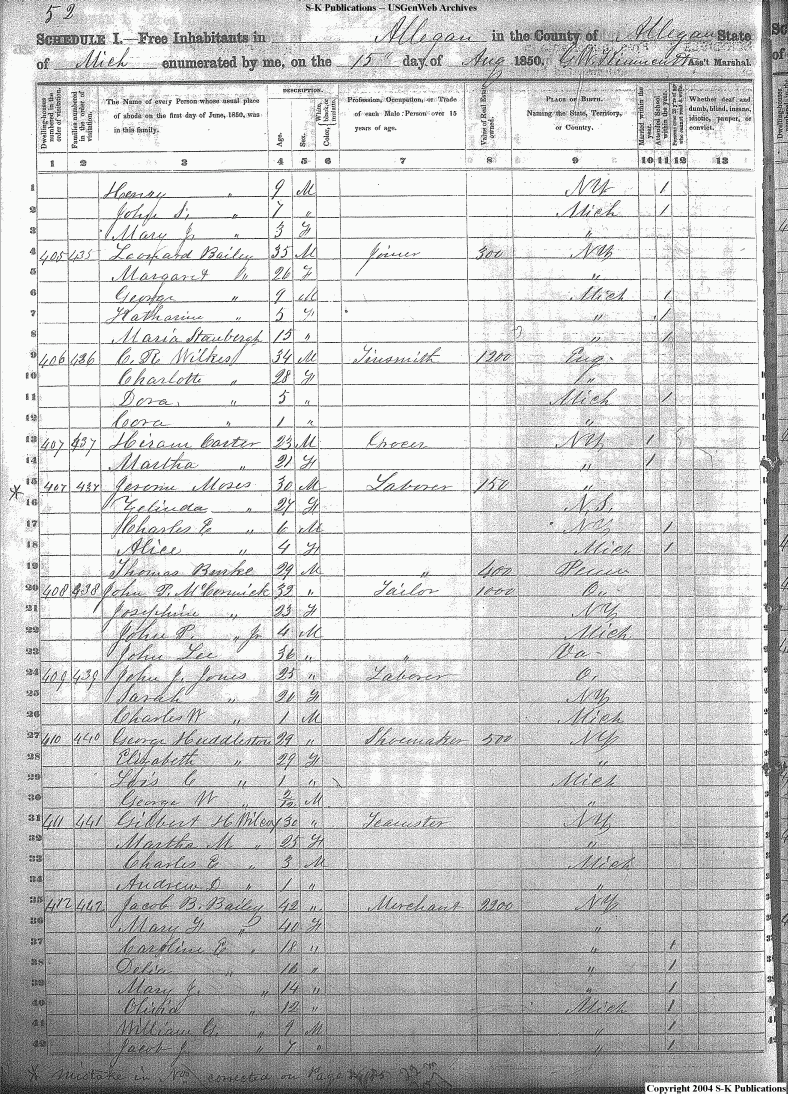 S-K Publications – USGenWeb Archives
52
SCHEDULE I.—Free Inhabitants in Allegan in the County of Allegan State
of Mich enumerated by me, on the 15th day of Aug 1850. Ass't Marshal.
Dwelling-houses numbered in the order of visitation.
Families numbered in the order of visitation.
The Name of every Person whose usual place of abode on the first day of June, 1850, was in this family.
DESCRIPTION.
Age.
Sex.
Color, White, black, or mulatto.
Profession, Occupation, or Trade of each Male Person over 15 years of age.
Value of Real Estate owned.
PLACE OF BIRTH. Naming the State, Territory, or Country.
Married within the year.
Attended School within the year.
Persons over 20 y'rs of age who cannot read & write.
Whether deaf and dumb, blind, insane, idiotic, pauper, or convict.
1 2 3 4 5 6 7 8 9 10 11 12 13
1 Henry " 9 M NY 1
2 John S. " 7 " Mich 1
3 Mary J. " 3 F "
4 405 435 Leonard Bailey 35 M Joiner 300 NY
5 Margaret " 26 F "
6 George " 9 M Mich 1
7 Katharine " 5 F " 1
8 Maria 15 " " 1
9 406 436 C. R. Wilkes 34 M Tinsmith 1200 Eng.
10 Charlotte " 28 F "
11 Dora " 5 " Mich 1
12 Cora " 1 " "
13 407 437 Hiram Carter 23 M Grocer NY 1
14 Martha " 21 F " 1
* 15 407 437 Jerome Moses 30 M Laborer 150 "
16 Zelinda " 27 F N.S.
17 Charles E " 6 M NY 1
18 Alice " 4 F Mich 1
19 Thomas Burke 29 M " 400 Penn
20 408 438 John P. McCormick 32 " Tailor 1000 O.
21 Josephine " 23 F NY
22 John P. " Jr 4 M Mich
23 John Lee 36 " " Va.
24 409 439 John J. Jones 25 " Laborer O.
25 Sarah " 20 F NY
26 Charles W " 1 M Mich
27 410 440 George Huddleston 29 " Shoemaker 500 NY
28 Elizabeth " 29 F "
29 Lois C " 1 " Mich
30 George W " 2/12 M "
31 411 441 Gilbert H Wilcox 30 " Teamster NY
32 Martha M " 25 F "
33 Charles E " 3 M Mich
34 Andrew D " 1 " "
35 412 442 Jacob B. Bailey 42 " Merchant 2200 NY
36 Mary F " 40 F "
37 Caroline E " 18 " " 1
38 Delia " 16 " " 1
39 Mary J. " 14 " " 1
40 Olivia " 12 " Mich 1
41 William G. " 9 M " 1
42 Jacob J. " 7 " " 1
* mistake in Nos corrected on Page
Copyright 2004 S-K Publications